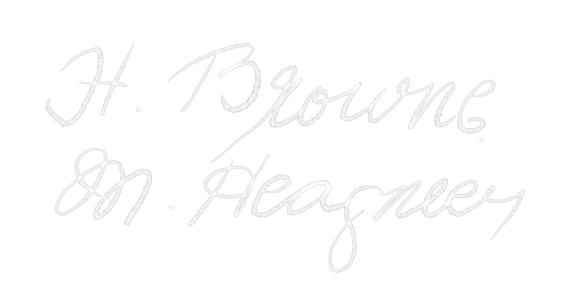 H. Browne
M. Heagney